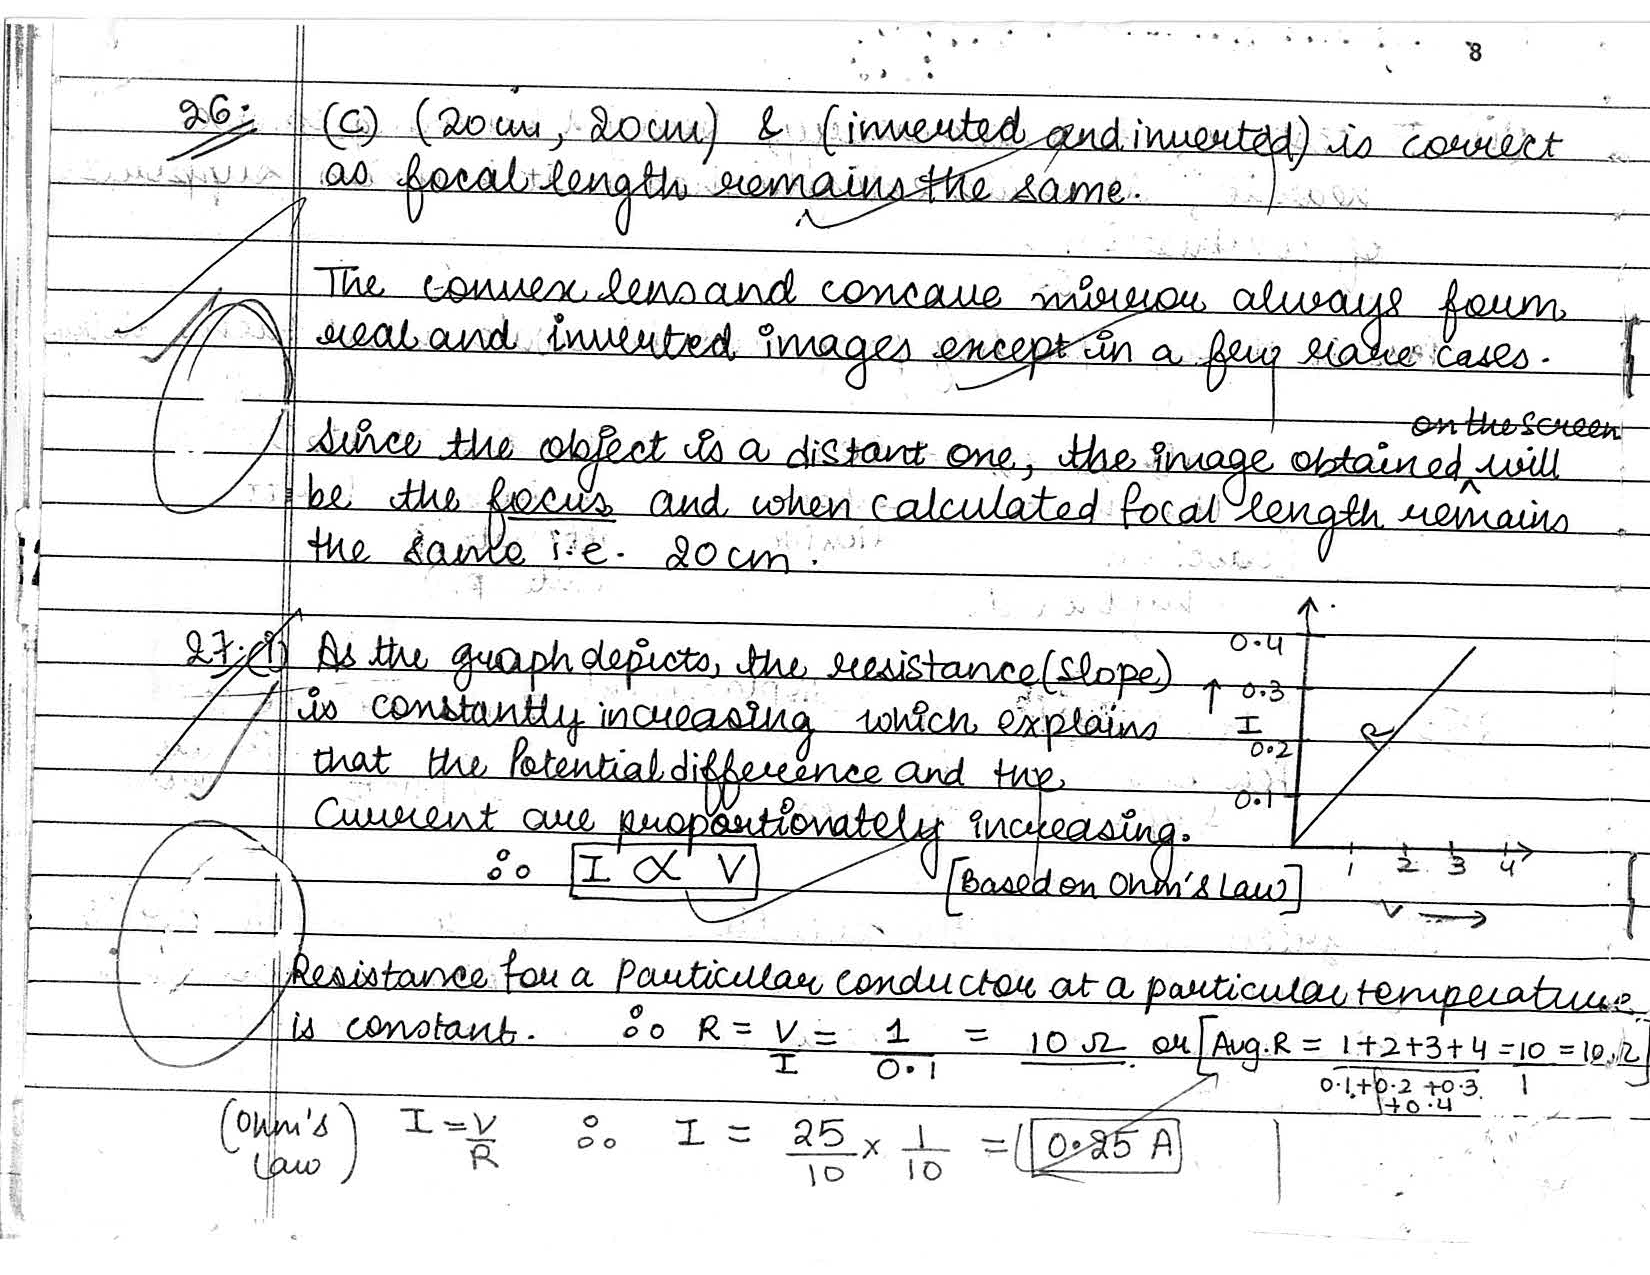 8
26.
(C) (20cm, 20cm) & (inverted and inverted) is correct
as focal length remains the same.
The convex lens and concave mirror always form
real and inverted images except in a few rare cases.
on the screen
Since the object is a distant one, the image obtained ^ will
be the focus and when calculated focal length remains
the same i.e. 20cm.
27. (i) As the graph depicts, the resistance (slope)
is constantly increasing which explains
that the Potential difference and the
Current are proportionately increasing.
∴ I ∝ V [Based on Ohm's Law]
0.4
↑ 0.3
I
0.2
0.1
R
1 2 3 4
V →
Resistance for a Particular conductor at a particular temperature
is constant. ∴ R = V/I = 1/0.1 = 10 Ω or [Avg. R = 1+2+3+4/0.1+0.2+0.3+0.4 = 10/1 = 10Ω]
(Ohm's Law) I = V/R ∴ I = 25/10 × 1/10 = 0.25 A